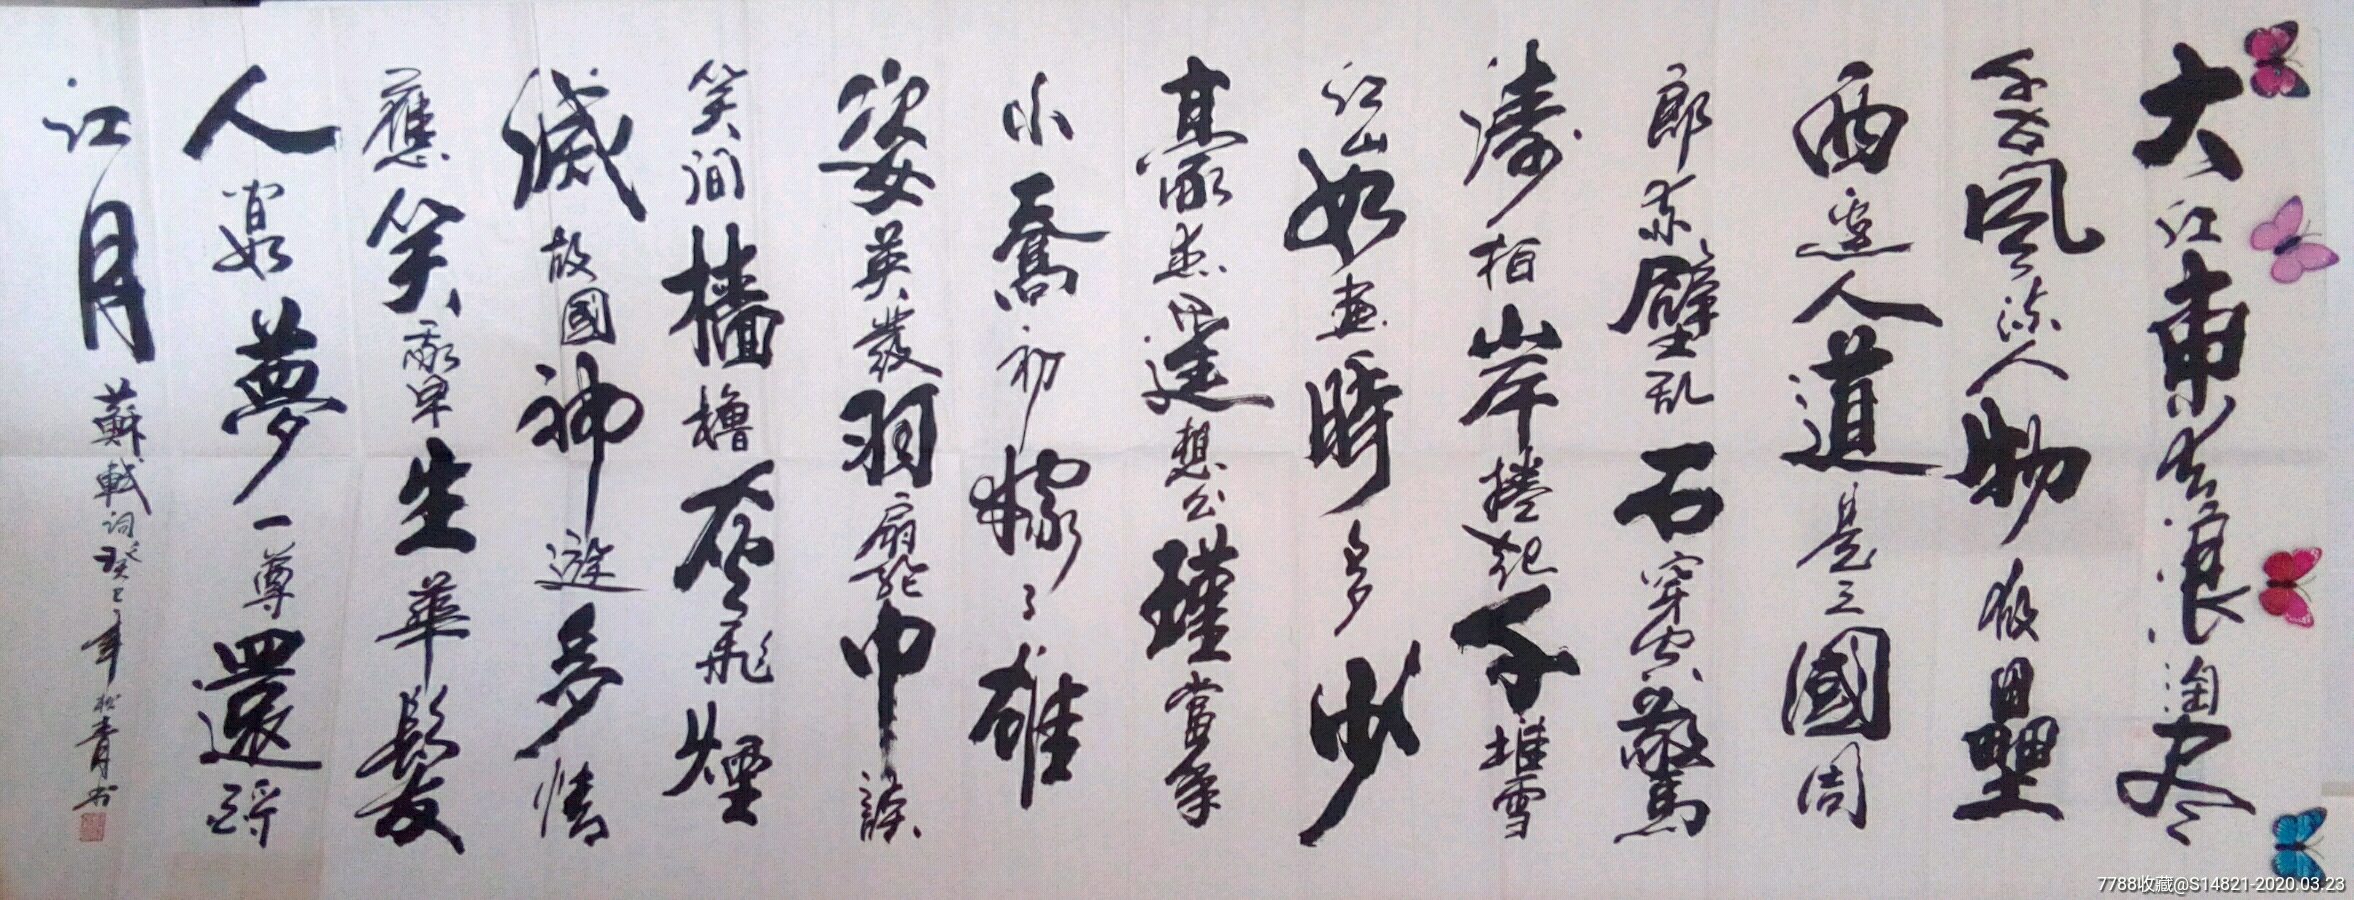 大江東去浪淘尽
千古風流人物故壘
西邊人道是三國周
郎赤壁乱石穿空驚
濤拍岸捲起千堆雪
江山如畫時多少
豪杰遥想公瑾當年
小喬初嫁了雄
姿英發羽扇綸巾談
笑間檣櫓灰飛煙
滅故國神遊多情
應笑我早生華髮
人間如夢一尊還酹
江月 蘇軾詞癸巳年松青书
7788收藏@S14821-2020.03.23